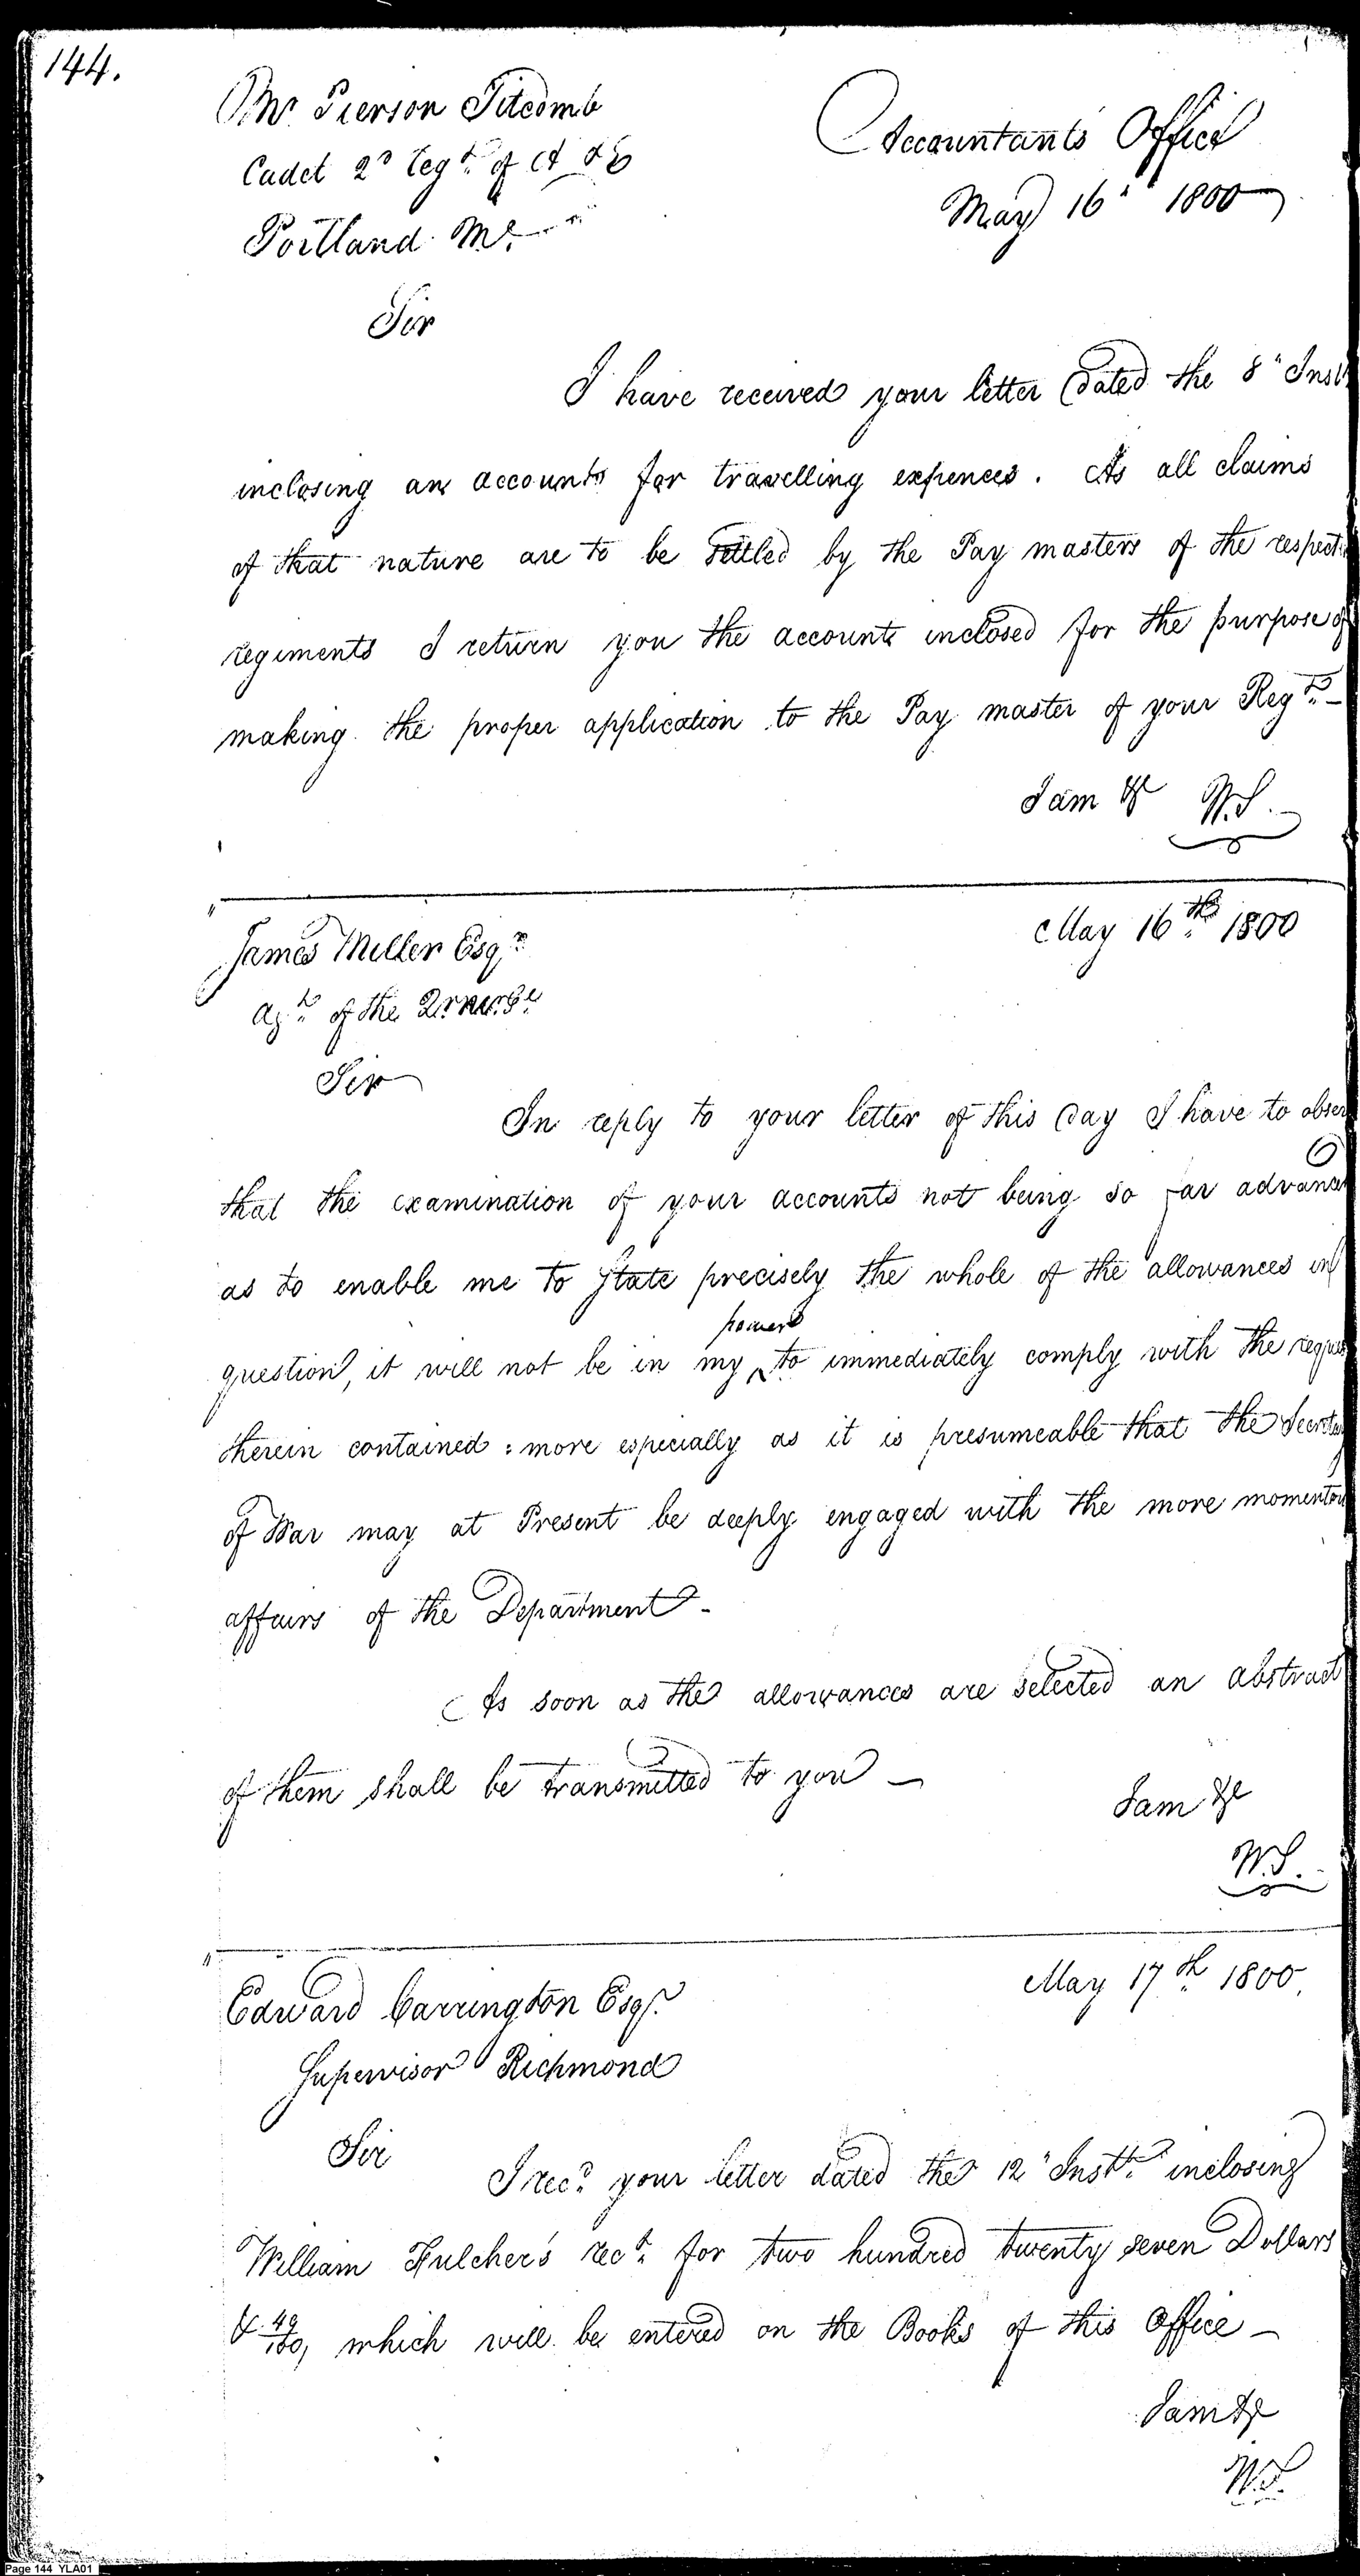 144.
Mr. Pierson Titcomb
Accountants Office
Cadet 2d Regt. of A & E
May 16" 1800
Portland Me.
Sir
I have received your letter dated the 8" Inst
inclosing an accounts for travelling expences. As all claims
of that nature are to be settled by the Pay masters of the respect
regiments I return you the accounts inclosed for the purpose of
making the proper application to the Pay master of your Regt. -
I am &c W.S.
James Miller Esqr.
May 16th. 1800
agt. of the
Sir
In reply to your letter of this day I have to obser
that the examination of your accounts not being so far advanc
as to enable me to State precisely the whole of the allowances in
question, it will not be in my power to immediately comply with the reques
therein contained: more especially as it is presumeable that the Secretary
of War may at Present be deeply engaged with the more momentou
affairs of the Department -
As soon as the allowances are selected an abstract
of them shall be transmitted to you -
I am &c
W.S.
Edward Carrington Esqr.
May 17th. 1800.
Supervisor Richmond
Sir
I recd. your letter dated the 12" Instt. inclosing
William Fulcher's rect. for two hundred twenty seven Dollars
& 49/100, which will be entered on the Books of this Office -
I am &c
W.S.
Page 144 YLA01